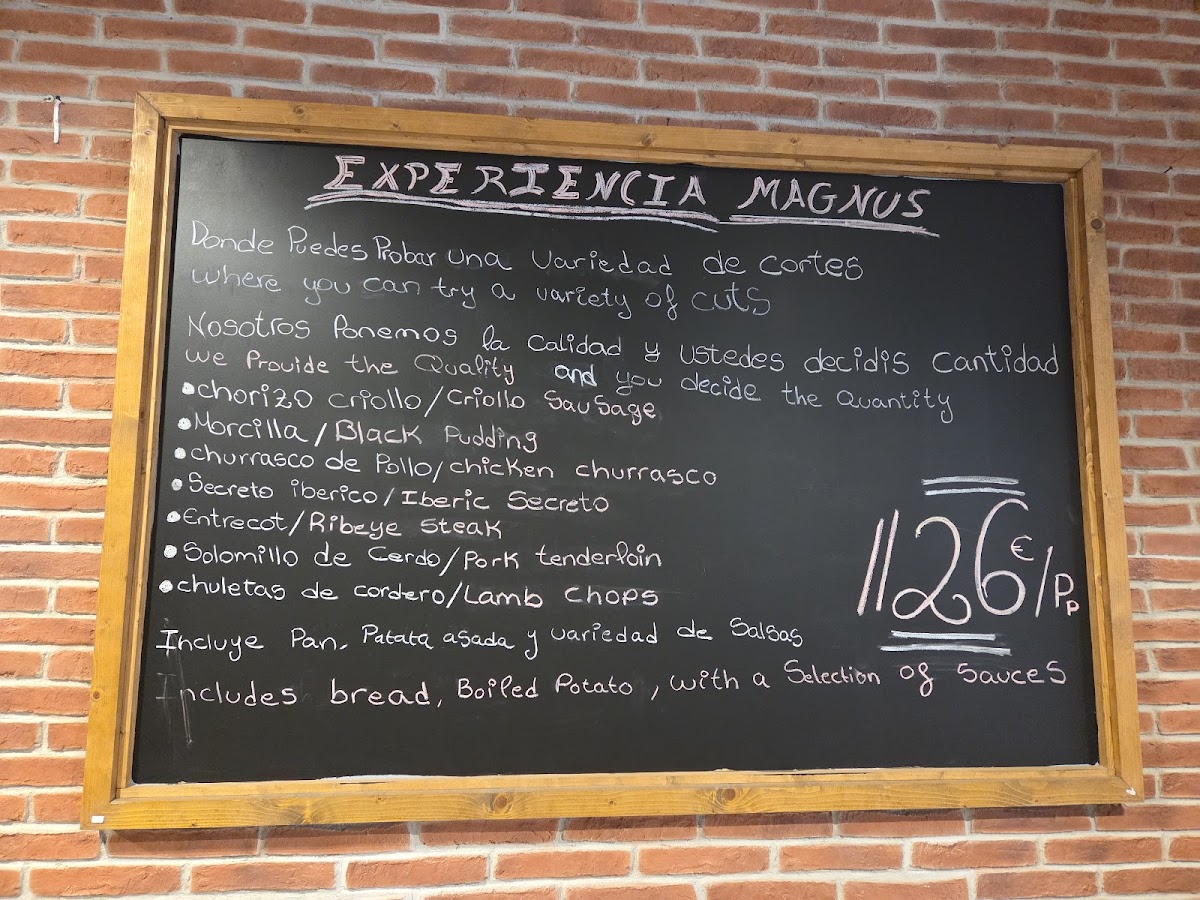 EXPERIENCIA MAGNUS
Donde Puedes Probar una variedad de cortes
where you can try a variety of cuts
Nosotros Ponemos la calidad y ustedes decidis cantidad
we Provide the Quality and you decide the Quantity
•chorizo criollo/Criollo Sausage
•Morcilla/Black Pudding
•churrasco de Pollo/chicken churrasco
•Secreto iberico/Iberic Secreto
•Entrecot/Ribeye steak
•Solomillo de Cerdo/Pork tenderloin
•chuletas de cordero/Lamb Chops
26€/Pp
Incluye Pan, Patata asada y variedad de Salsas
Includes bread, Boiled Potato, with a Selection of Sauces